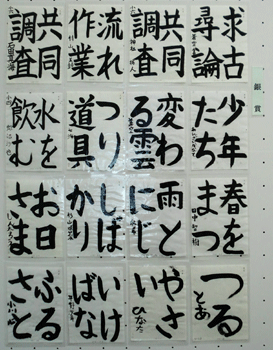 銀賞
求古
尋論
共同
調査
流れ
作業
共同
調査
少年
たち
変わ
る雲
つり
道具
水を
飲む
春を
まつ
雨と
にじ
しば
かり
お日
さま
つる
とあ
やさ
い
ひなた
いけ
ばな
ふる
さと